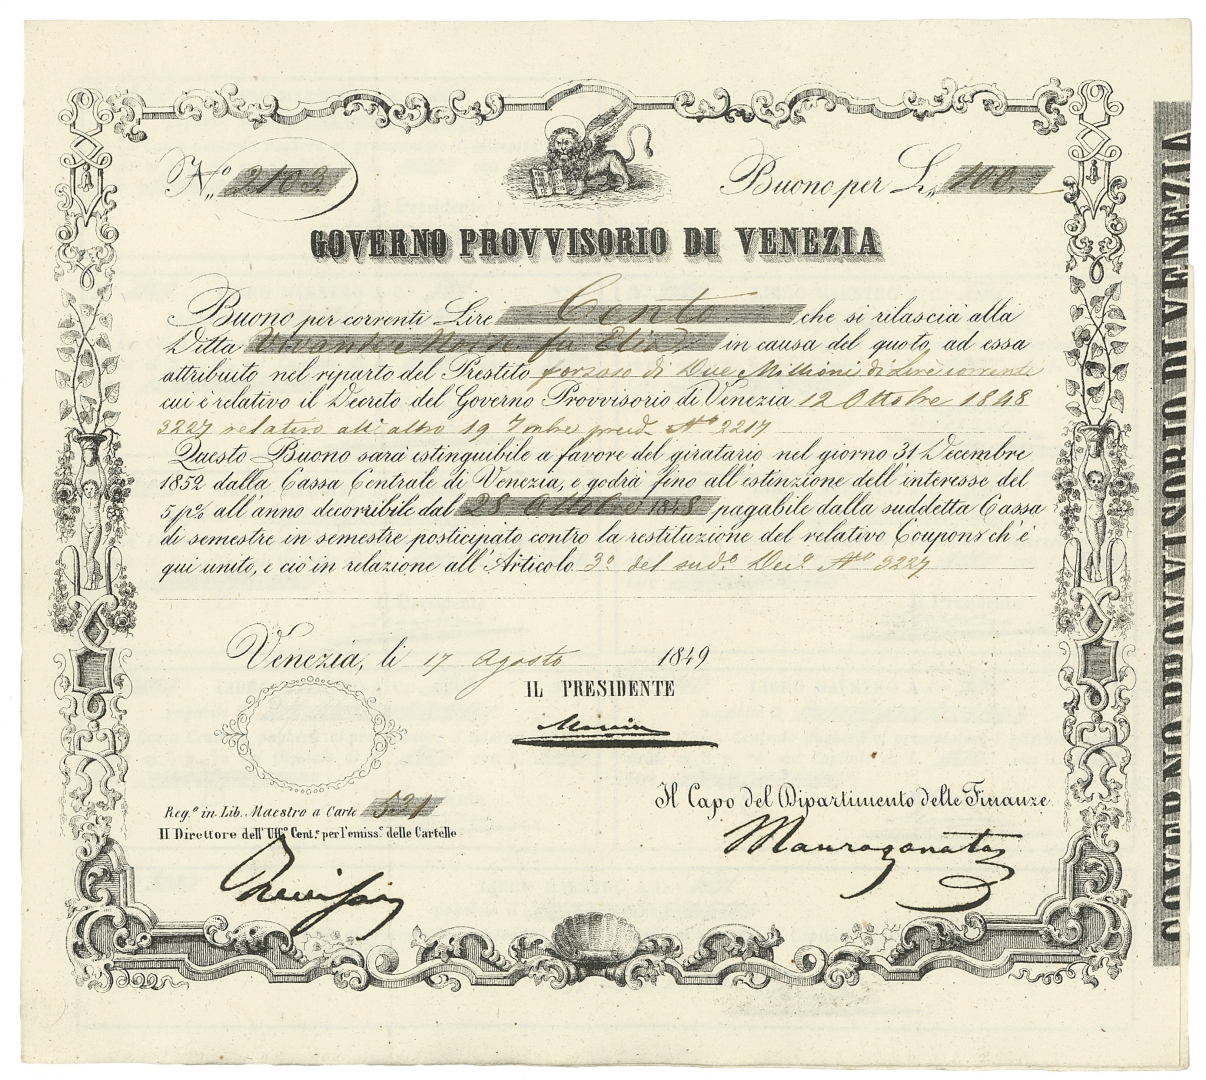 N.º 2103.
Buono per L. 100.
GOVERNO PROVVISORIO DI VENEZIA
Buono per correnti Lire Cento che si rilascia alla
Ditta Vivante Moise fu Elia in causa del quoto, ad essa
attribuito nel riparto del Prestito forzoso di Due Millioni di Lire correnti
cui è relativo il Decreto del Governo Provvisorio di Venezia 12 Ottobre 1848
3227 relativo all' altro 19 7mbre pred. Nº 2217
Questo Buono sarà estinguibile a favore del giratario nel giorno 31 Decembre
1852 dalla Cassa Centrale di Venezia, e godrà fino all'estinzione dell'interesse del
5 p% all'anno decorribile dal 28 Ottobre 1848 pagabile dalla suddetta Cassa
di semestre in semestre posticipato contro la restituzione del relativo Coupons ch'è
qui unito, e ciò in relazione all'Articolo 3º del sudº Decº Nº 3227
Venezia, li 17 Agosto 1849
IL PRESIDENTE
Manin
Reg.º in Lib. Maestro a Carte 531
Il Capo del Dipartimento delle Finanze
Il Direttore dell'Uff.º Cent.e per l'emiss.e delle Cartelle
Maurogonato
GOVERNO PROVVISORIO DI VENEZIA